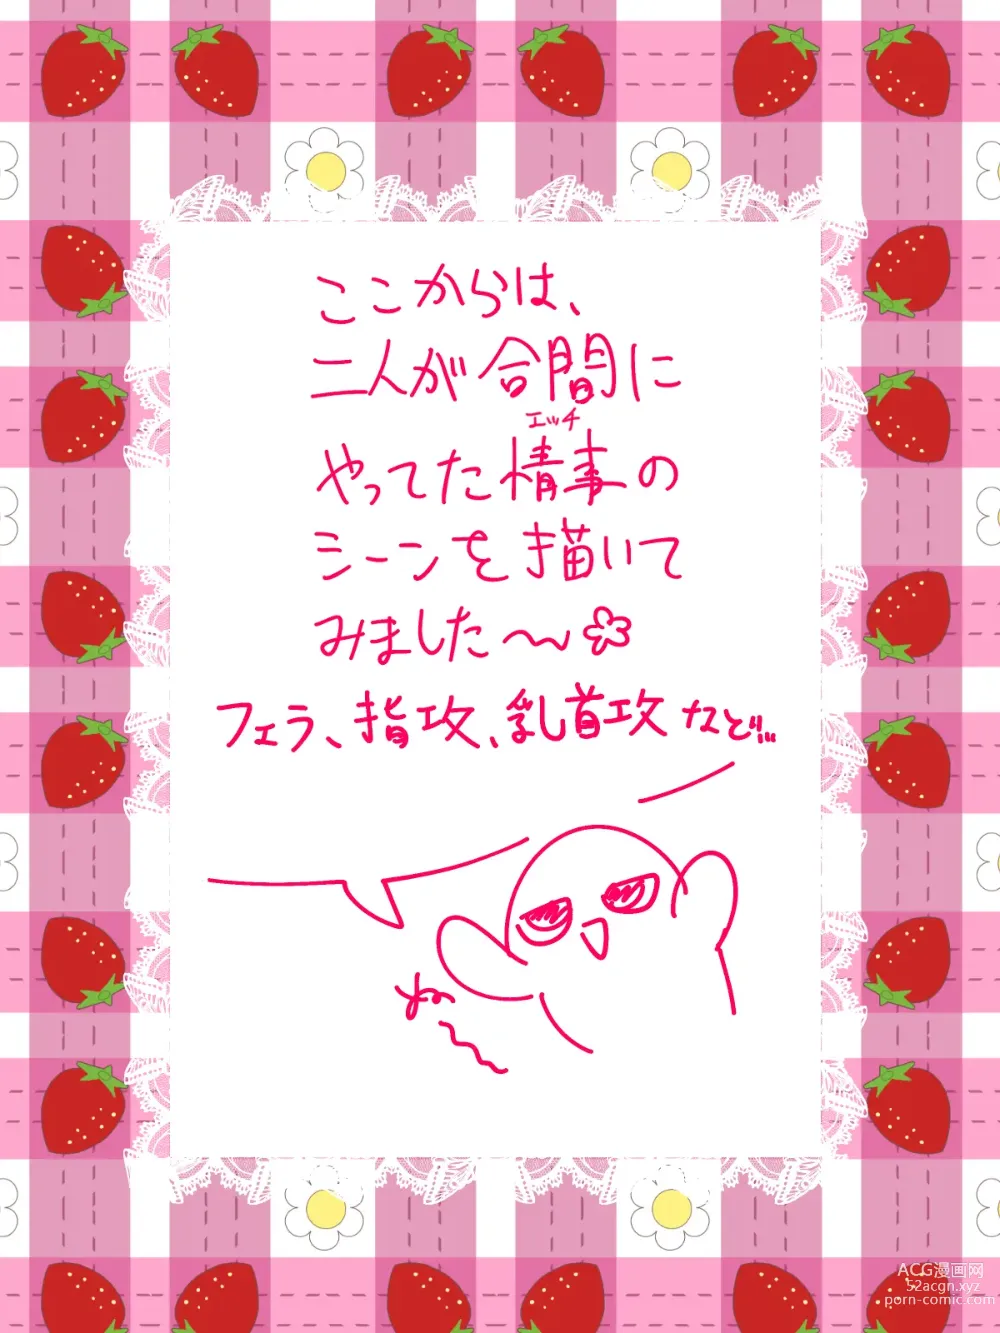 ここからは、
二人が合間に
エッチ
やってた情事の
シーンを描いて
みました〜
フェラ、指攻、乳首攻など!!...
ACG漫画网
52acgn.xyz
porn-comic.com